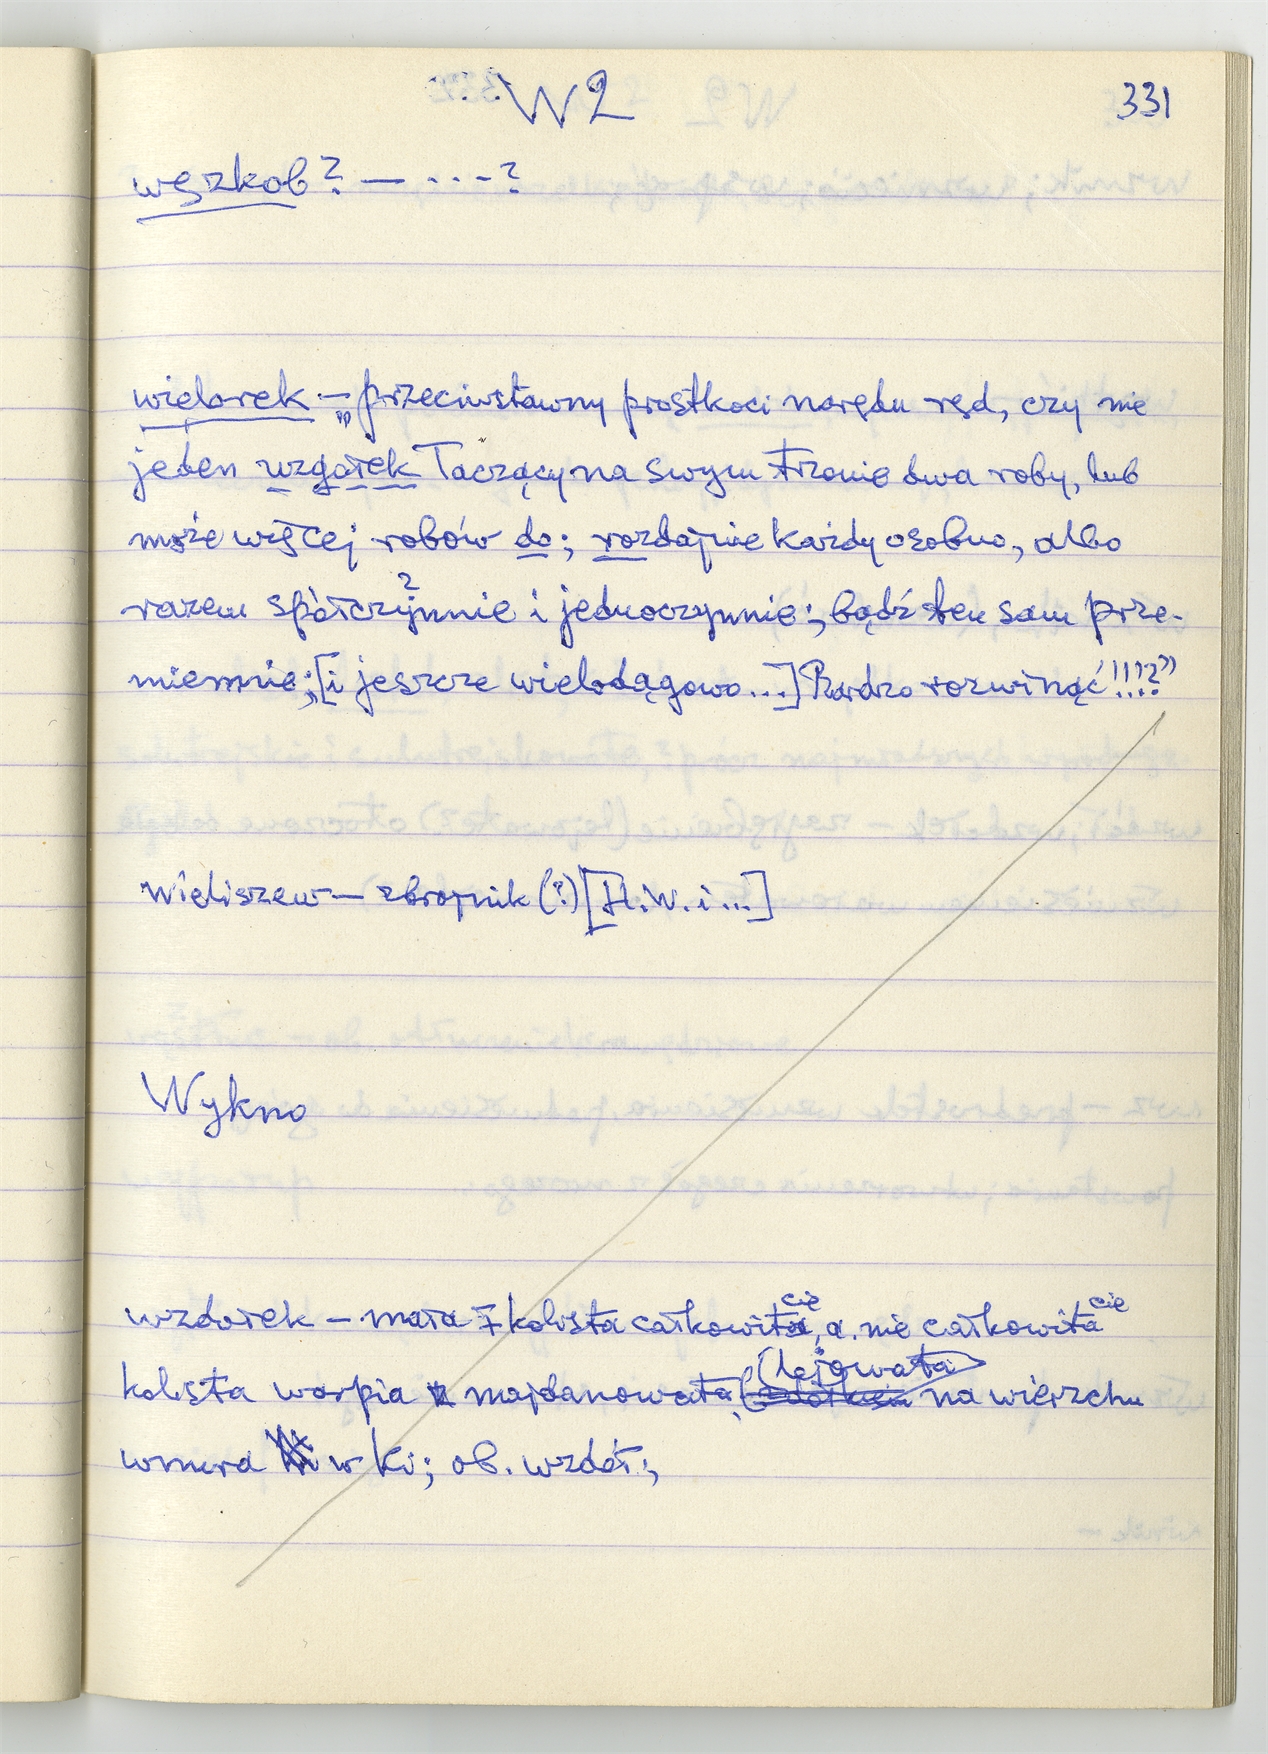 W2 331
węszkob? — ...-?
wielorek — „przeciwstawny prostkoci narędu ręd, czy nie
jeden wzgołek łączący na swym trzonie dwa roby, lub
może więcej robów do; rozdajnie każdy osobno, albo
razem spółczynnie i jednoczynnie; bądź ten sam prze-
miennie; [i jeszcze wielodągowo...] Bardzo rozwinąć!!!?"
wieliszew — zbrojnik (?) [H.W. i ...]
Wykno
wzdołek — mała kolista całkowicie, a nie całkowicie
(lejowata)
kolista warpia majdanowata, na wierzchu
wnura w ki; ob. wzdół;